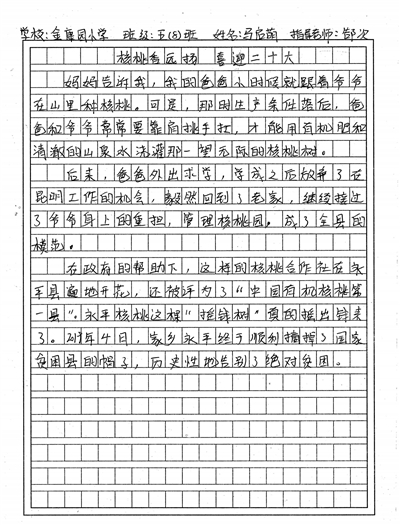 学校:金集团小学 班级:五(8)班 姓名:马启萌 指导老师:郜次
核桃香远扬 喜迎二十大
妈妈告诉我,我的爸爸小时候就跟着爷爷
在山里种核桃。可是,那时生产条件落后,爸
爸和爷爷常常要靠肩挑手扛,才能用有机肥和
清澈的山泉水浇灌那一望无际的核桃树。
后来,爸爸外出求学,学成之后放弃了在
昆明工作的机会,毅然回到了老家,继续接过
了爷爷身上的重担,管理核桃园。成了全县的
模范。
在政府的帮助下,这样的核桃合作社在永
平县遍地开花,还被评为了“中国有机核桃第
一县”。永平核桃这棵“摇钱树”真的摇出钱来
了。2019年4日,家乡永平终于顺利摘掉了国家
贫困县的帽子,历史性地告别了绝对贫困。